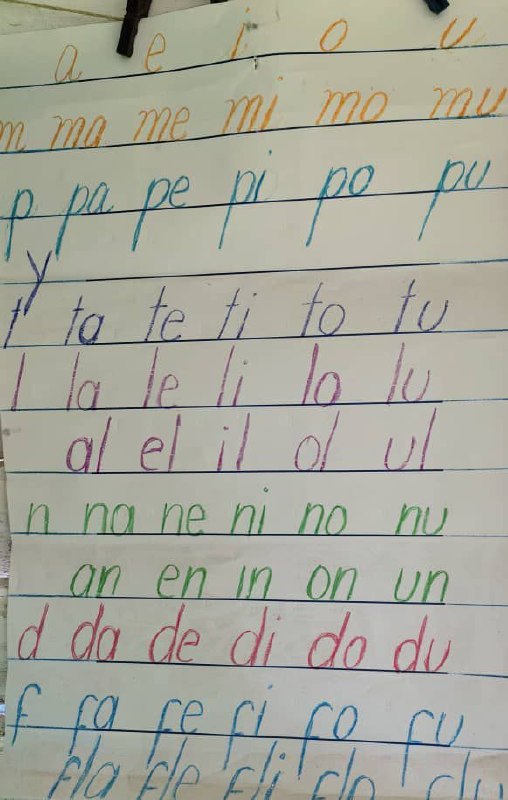 a e i o u
m ma me mi mo mu
p pa pe pi po pu
y
t ta te ti to tu
l la le li lo lu
al el il ol ul
n na ne ni no nu
an en in on un
d da de di do du
f fa fe fi fo fu
fla fle fli flo flu